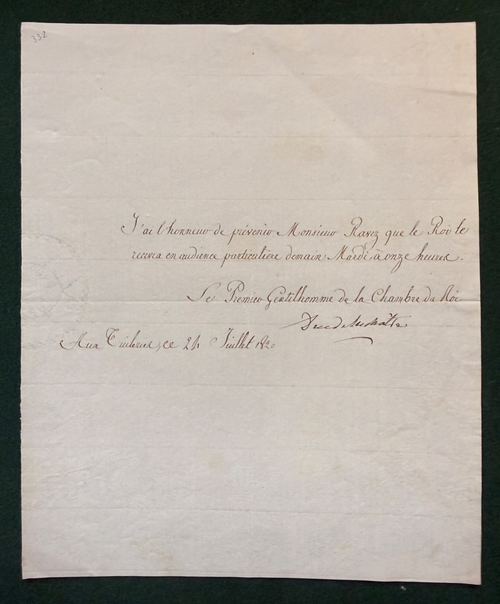 332
J'ai l'honneur de prévenir Monsieur Ravez que le Roi le
recevra en audience particulière demain Mardi à onze heures.
Le Premier Gentilhomme de la Chambre du Roi
Aux Tuileries, ce 24 Juillet 1820